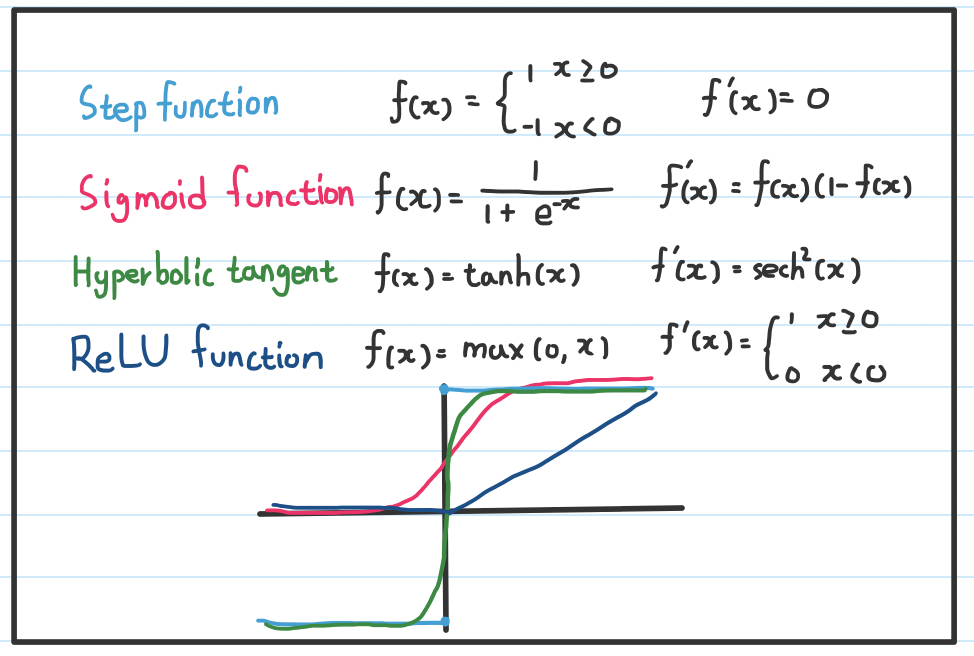 Step function f(x) = { 1 x ≥ 0 -1 x < 0 f'(x) = 0
Sigmoid function f(x) = 1 / 1 + e^-x f'(x) = f(x)(1 - f(x)
Hyperbolic tangent f(x) = tanh(x) f'(x) = sech²(x)
ReLU function f(x) = max(0, x) f'(x) = { 1 x ≥ 0 0 x < 0